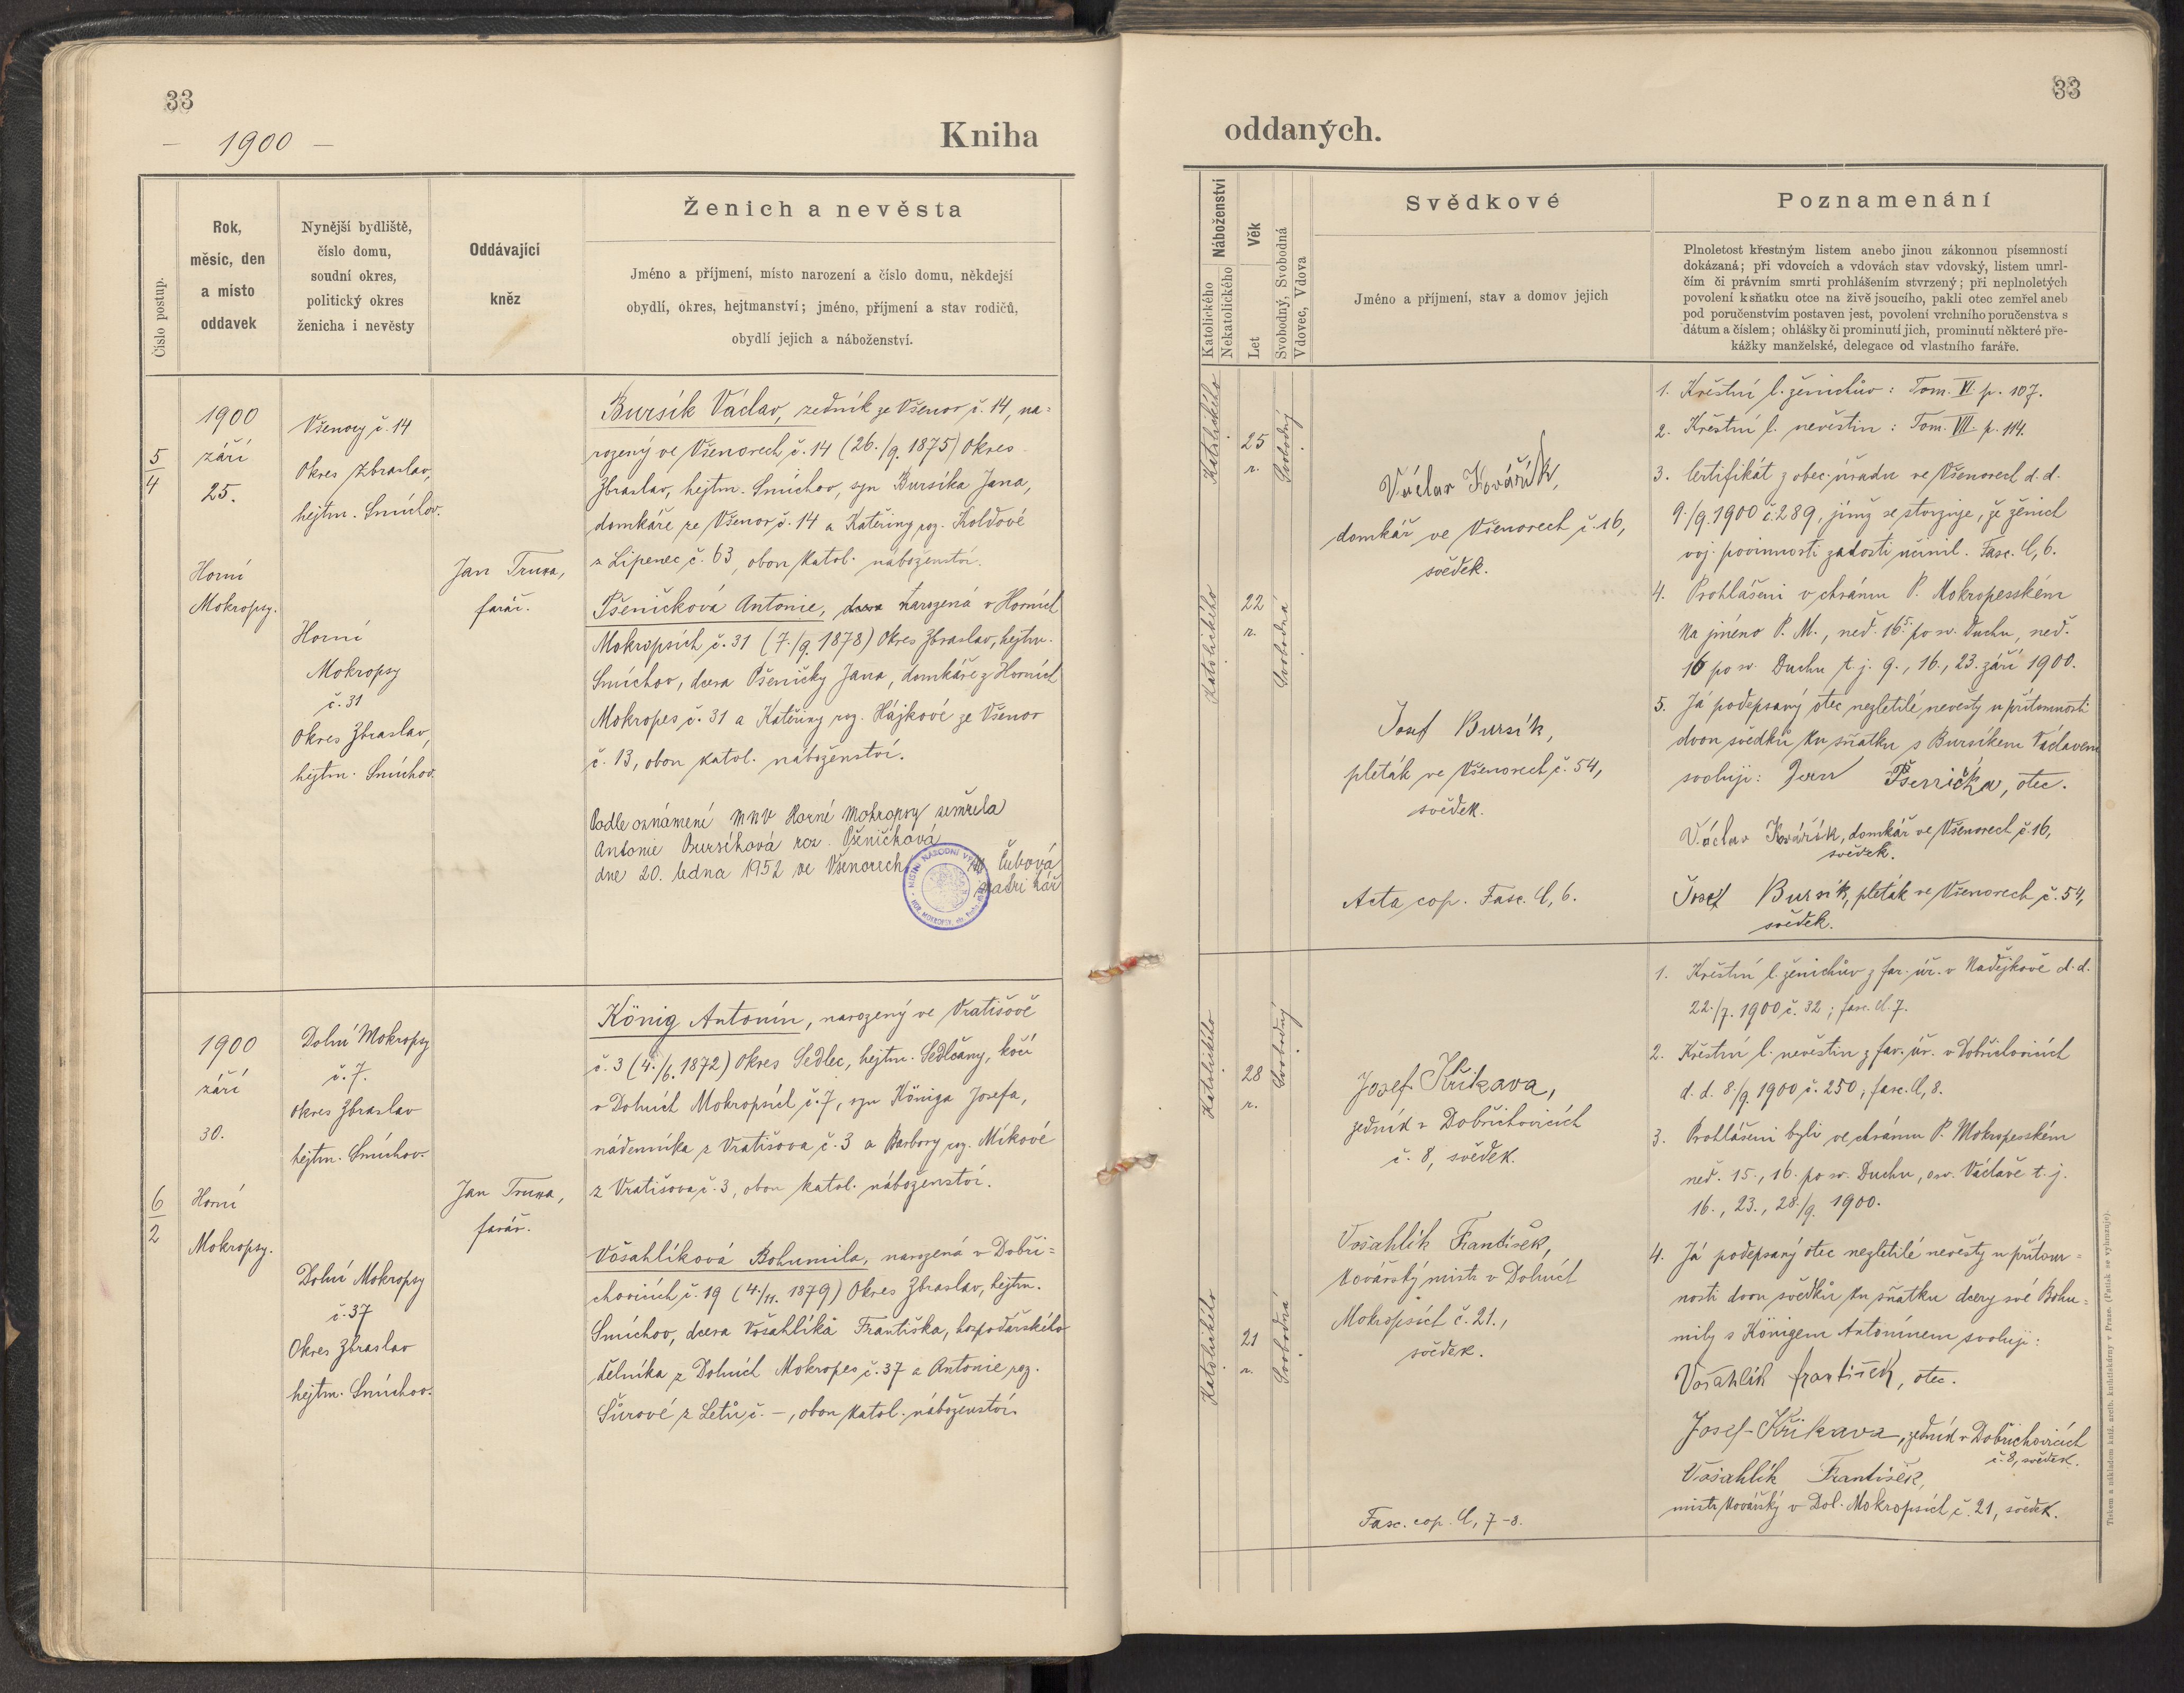 33
— 1900 —
Kniha
Číslo postup.
Rok,
měsíc, den
a místo
oddavek
Nynější bydliště,
číslo domu,
soudní okres,
politický okres
ženicha i nevěsty
Oddávající
kněz
Ženich a nevěsta
Jméno a příjmení, místo narození a číslo domu, někdejší
obydlí, okres, hejtmanství; jméno, příjmení a stav rodičů,
obydlí jejich a náboženství.
5
4
1900
září
25.
Horní
Mokropsy.
Všenory č. 14
Okres Zbraslav,
hejtm. Smíchov.
Horní
Mokropsy
č. 31
Okres Zbraslav,
hejtm. Smíchov.
Jan Truxa,
farář.
Bursík Václav, zedník ze Všenor č. 14, na-
rozený ve Všenorech č. 14 (26./9. 1875) Okres
Zbraslav, hejtm. Smíchov, syn Bursíka Jana,
domkáře ze Všenor č. 14 a Kateřiny roz. Koldové
z Lipenec č. 63, obou katol. náboženství.
Pšeničková Antonie, dcera narozená v Horních
Mokropsích č. 31 (7./9. 1878) Okres Zbraslav, hejtm.
Smíchov, dcera Pšeničky Jana, domkáře z Horních
Mokropes č. 31 a Kateřiny roz. Hájkové ze Všenor
č. 13, obou katol. náboženství.
Podle oznámení MNV Horní Mokropsy zemřela
Antonie Bursíková roz. Pšeničková
dne 20. ledna 1952 ve Všenorech
Čubová
matrikář
MÍSTNÍ NÁRODNÍ VÝBOR
HOR. MOKROPSY
6
2
1900
září
30.
Horní
Mokropsy.
Dolní Mokropsy
č. 7.
okres Zbraslav
hejtm. Smíchov.
Dolní Mokropsy
č. 37
Okres Zbraslav
hejtm. Smíchov.
Jan Truxa,
farář.
König Antonín, narozený ve Vratišově
č. 3 (4./6. 1872) Okres Sedlec, hejtm. Sedlčany, kočí
v Dolních Mokropsích č. 7, syn Königa Josefa,
nádenníka z Vratišova č. 3 a Barbory roz. Míkové
z Vratišova č. 3, obou katol. náboženství.
Vošahlíková Bohumila, narozená v Dobři-
chovicích č. 19 (4./11. 1879) Okres Zbraslav, hejtm.
Smíchov, dcera Vošahlíka Františka, hospodářského
dělníka z Dolních Mokropes č. 37 a Antonie roz.
Šůrové z Letů č. –, obou katol. náboženství.
33
oddaných.
Náboženství
Katolického
Nekatolického
Věk
Let
Svobodný, Svobodná
Vdovec, Vdova
Svědkové
Jméno a příjmení, stav a domov jejich
Poznamenání
Plnoletost křestným listem anebo jinou zákonnou písemností
dokázaná; při vdovcích a vdovách stav vdovský, listem umrl-
čím či právním smrti prohlášením stvrzený; při neplnoletých
povolení k sňatku otce na živě jsoucího, pakli otec zemřel aneb
pod poručenstvím postaven jest, povolení vrchního poručenstva s
dátum a číslem; ohlášky či prominutí jich, prominutí některé pře-
kážky manželské, delegace od vlastního faráře.
Katolického
25
r.
Svobodný
Katolického
22
r.
Svobodná
Václav Kovářík,
domkář ve Všenorech č. 16,
svědek.
Josef Bursík,
pleták ve Všenorech č. 54,
svědek.
Acta cop. Fasc. C, 6.
1. Křestní l. ženichův: Tom. VI. p. 107.
2. Křestní l. nevěstin: Tom. VII. p. 114.
3. Certifikát z obec. úřadu ve Všenorech d. d.
9./9. 1900 č. 289, jímž se stvrzuje, že ženich
voj. povinnosti zadosti učinil. Fasc. C, 6.
4. Prohlášeni v chrámu P. Mokropesském
Na jméno P. M., neď. 15. po sv. Duchu, neď.
16 po sv. Duchu t. j. 9., 16., 23. září 1900.
5. Já podepsaný otec nezletilé nevěsty u přítomnosti
dvou svědků ku sňatku s Bursíkem Václavem
svoluji: Jan Pšenička, otec.
Václav Kovářík, domkář ve Všenorech č. 16,
svědek.
Josef Bursík, pleták ve Všenorech č. 54,
svědek.
Katolického
28
r.
Svobodný
Katolického
21
r.
Svobodná
Josef Křikava,
zedník v Dobřichovicích
č. 8, svědek.
Vošahlík František,
kovářský mistr v Dolních
Mokropsích č. 21.,
svědek.
Fasc. cop. C, 7-8.
1. Křestní l. ženichův z far. úř. v Nadějkově d. d.
22./7. 1900 č. 32; fasc. C. 7.
2. Křestní l. nevěstin z far. úř. v Dobřichovicích
d. d. 8./9. 1900 č. 250; fasc. C, 8.
3. Prohlášeni byli ve chrámu P. Mokropesském
neď. 15., 16. po sv. Duchu, o sv. Václavě t. j.
16., 23., 28./9. 1900.
4. Já podepsaný otec nezletilé nevěsty u přítom-
nosti dvou svědků ku sňatku dcery své Bohu-
mily s Königem Antonínem svoluji:
Vošahlík František, otec.
Josef Křikava, zedník v Dobřichovicích
č. 8, svědek.
Vošahlík František,
mistr kovářský v Dol. Mokropsích č. 21, svědek.
Tiskem a nákladem kníž. arcib. knihtiskárny v Praze. (Patisk se vyhrazuje).